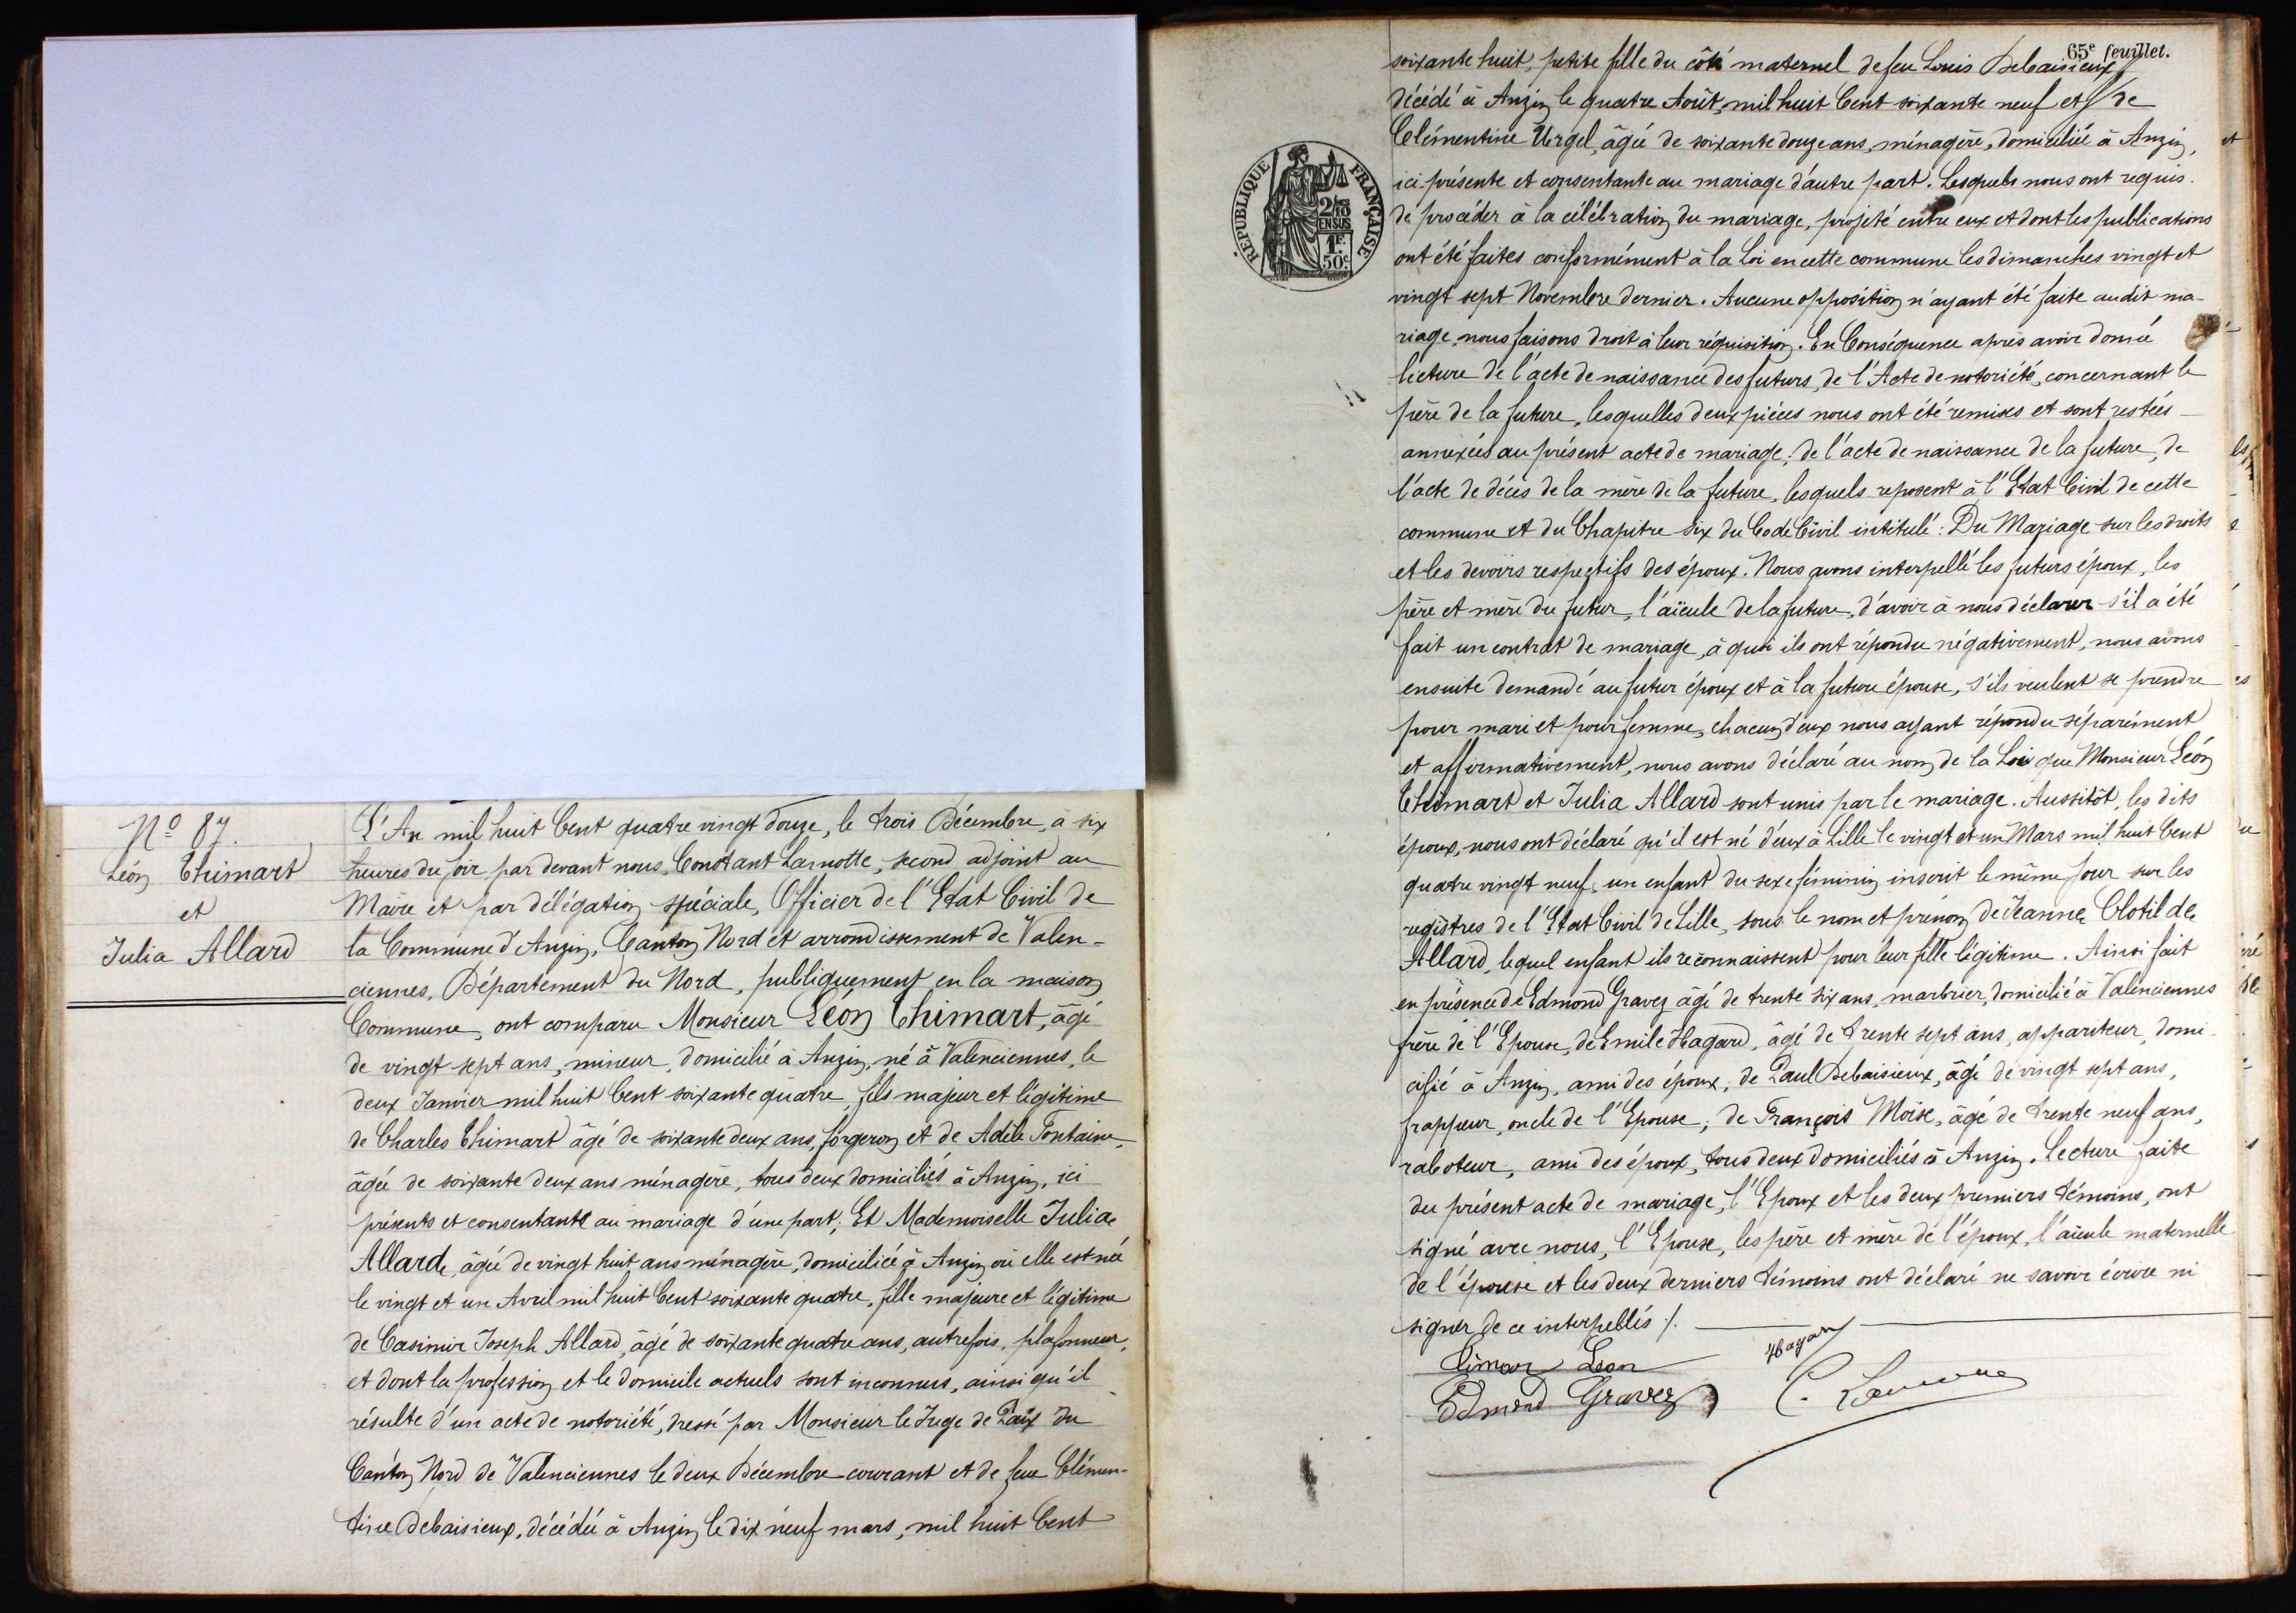 Nº 87.
Léon Thimart
et
Julia Allard
L'An mil huit Cent quatre vingt douze, le trois Décembre, à six
heures du soir par devant nous, Constant Lamotte, second adjoint au
Maire et par délégation spéciale, Officier de l'Etat Civil de
la Commune d'Anzin, Canton Nord et arrondissement de Valen-
ciennes, Département du Nord, publiquement en la maison
Commune, ont comparu Monsieur Léon Thimart, âgé
de vingt-sept ans, mineur, domicilié à Anzin, né à Valenciennes, le
deux Janvier mil huit Cent soixante quatre, fils majeur et légitime
de Charles Thimart âgé de soixante deux ans, forgeron et de Adèle Fontaine,
âgée de soixante deux ans ménagère, tous deux domiciliés à Anzin, ici
présents et consentants au mariage d'une part; Et Mademoiselle Julia
Allard, âgée de vingt huit ans ménagère, domiciliée à Anzin où elle est née
le vingt et un Avril mil huit Cent soixante quatre, fille majeure et légitime
de Casimir Joseph Allard, âgé de soixante quatre ans, autrefois, plafonneur,
et dont la profession et le domicile actuels sont inconnus, ainsi qu'il
résulte d'un acte de notoriété, dressé par Monsieur le Juge de Paix du
Canton Nord de Valenciennes le deux Décembre courant et de feue Clémen-
tine Debaisieux, décédée à Anzin le dix neuf mars, mil huit Cent
65e feuillet.
soixante huit, petite fille du côté maternel de feu Louis Debaisieux
décédé à Anzin le quatre Août, mil huit Cent soixante neuf et de
Clémentine Urgel, âgée de soixante douze ans, ménagère, domiciliée à Anzin,
ici présente et consentante au mariage d'autre part. Lesquels nous ont requis
de procéder à la célébration du mariage, projeté entre eux et dont les publications
ont été faites conformément à la Loi en cette commune les dimanches vingt et
vingt sept Novembre dernier. Aucune opposition n'ayant été faite audit ma-
riage, nous faisons droit à leur réquisition. En Conséquence après avoir donné
lecture de l'acte de naissance des futurs, de l'Acte de notoriété, concernant le
père de la future, lesquelles deux pièces nous ont été remises et sont restées
annexées au présent acte de mariage; de l'acte de naissance de la future, de
l'acte de décès de la mère de la future, lesquels reposent à l'Etat Civil de cette
commune et du Chapitre Six du Code Civil intitulé: Du Mariage sur les droits
et les devoirs respectifs des époux. Nous avons interpellé les futurs époux, les
père et mère du futur, l'aïeule de la future, d'avoir à nous déclarer s'il a été
fait un contrat de mariage, à quoi ils ont répondu négativement, nous avons
ensuite demandé au futur époux et à la future épouse, s'ils veulent se prendre
pour mari et pour femme, chacun d'eux nous ayant répondu séparément
et affirmativement, nous avons déclaré au nom de la Loi que Monsieur Léon
Thimart et Julia Allard sont unis par le mariage. Aussitôt, les dits
époux, nous ont déclaré qu'il est né d'eux à Lille le vingt et un Mars mil huit Cent
quatre vingt neuf, un enfant du sexe féminin inscrit le même jour sur les
registres de l'Etat Civil de Lille, sous le nom et prénom de Jeanne Clotilde
Allard, lequel enfant ils reconnaissent pour leur fille légitime. Ainsi fait
en présence de Edmond Gravez âgé de trente six ans, marbrier, domicilié à Valenciennes
frère de l'Epouse, de Emile Hagard, âgé de trente sept ans, appariteur, domi-
cilié à Anzin, ami des époux, de Paul Debaisieux, âgé de vingt sept ans,
frappeur, oncle de l'Epouse; de François Moise, âgé de trente neuf ans,
raboteur, ami des époux, tous deux domiciliés à Anzin. Lecture faite
du présent acte de mariage, l'Epoux et les deux premiers témoins, ont
signé avec nous, l'Epouse, les père et mère de l'époux, l'aïeule maternelle
de l'épouse et les deux derniers témoins ont déclaré ne savoir écrire ni
signer de ce interpellés /.
Timar Léon
Hagard
Edmond Gravez
C. Lamotte
RÉPUBLIQUE FRANÇAISE
2/10
EN SUS
1F.
50c.